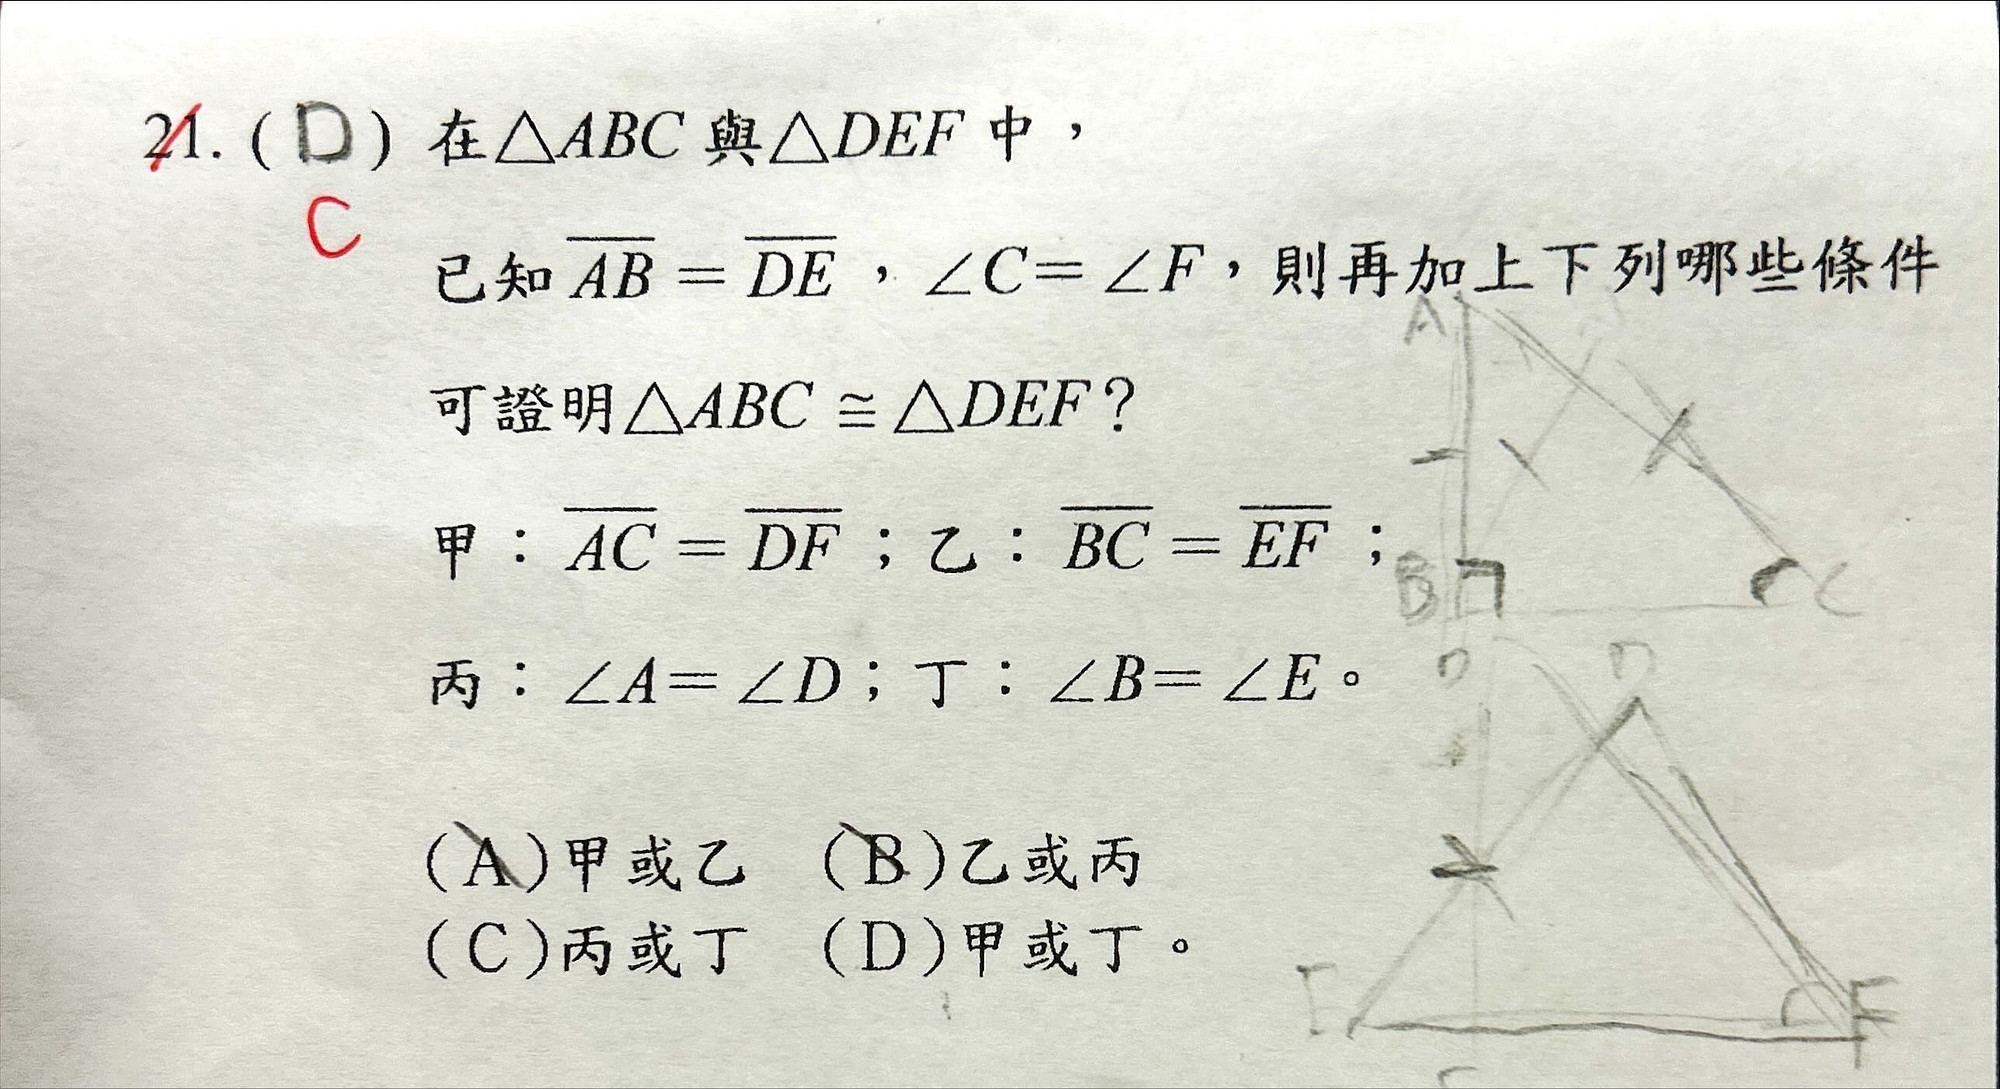 21. ( D ) 在△ABC 與△DEF 中，
C
已知 AB = DE ，∠C= ∠F，則再加上下列哪些條件
可證明△ABC ≅ △DEF？
甲：AC = DF ；乙：BC = EF ；
丙：∠A= ∠D；丁：∠B= ∠E。
(A)甲或乙 (B)乙或丙
(C)丙或丁 (D)甲或丁。
A
B C
D D
E F